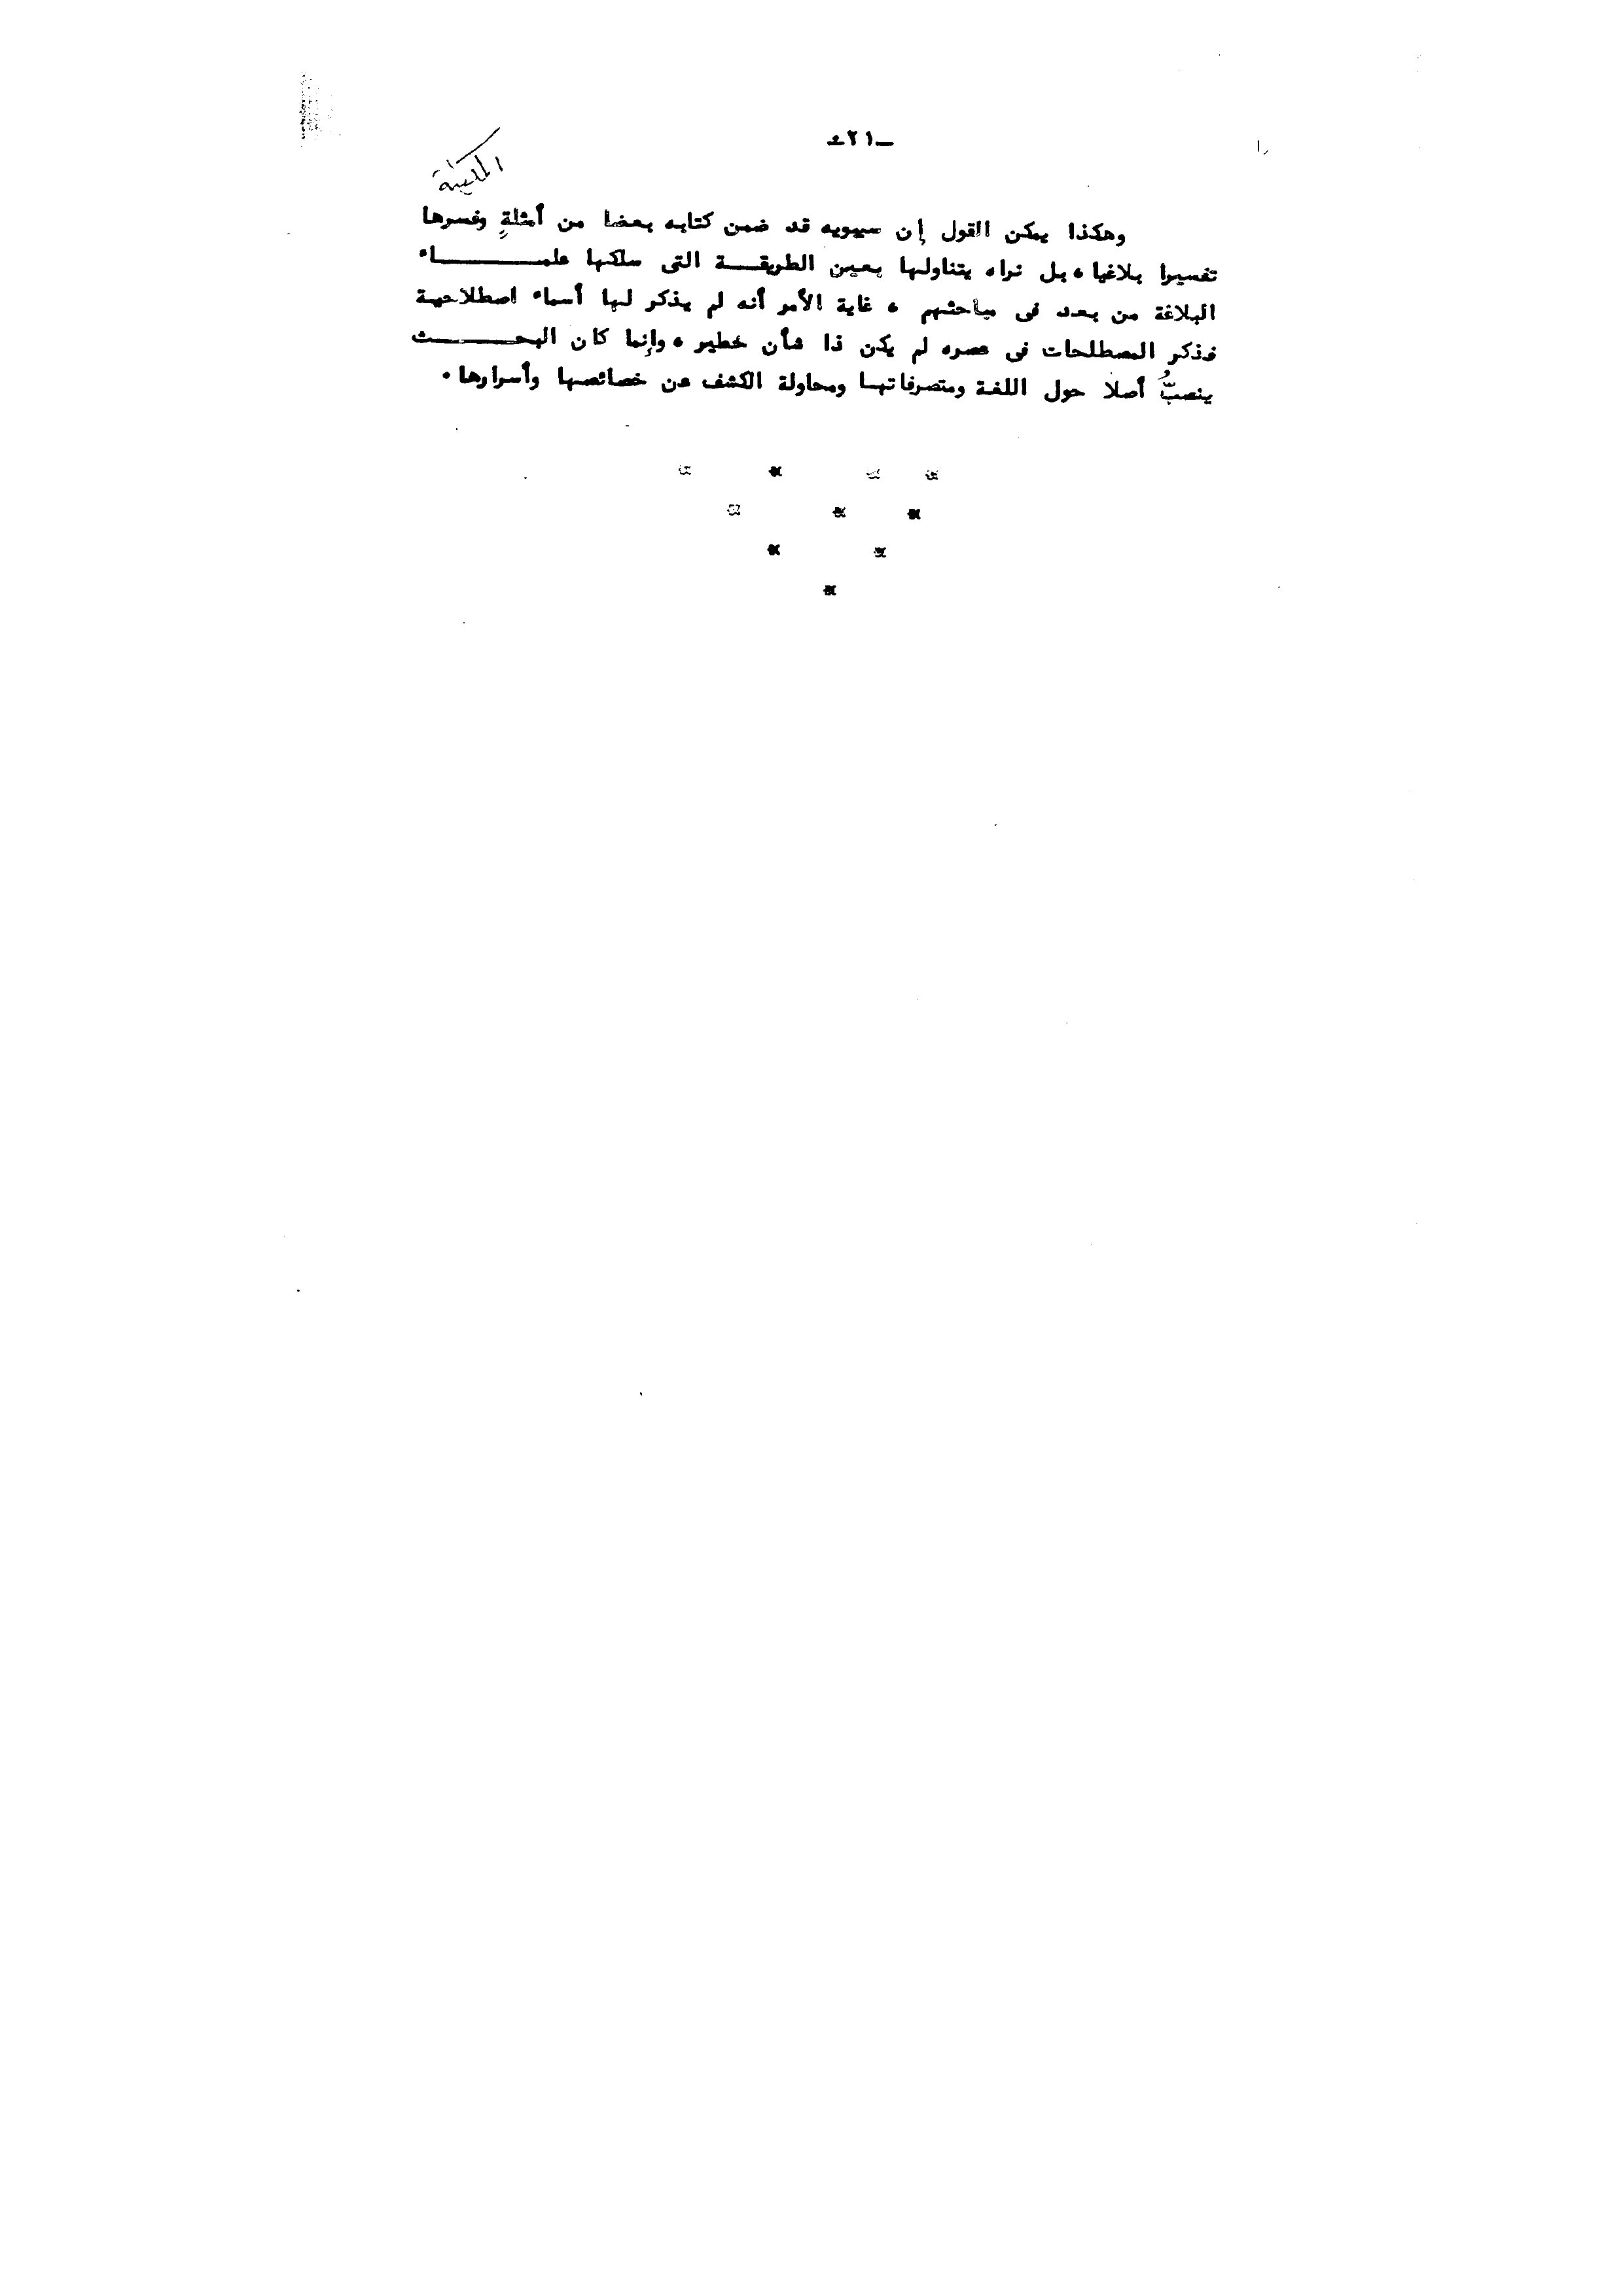 ـ٢١ـ
وهكذا يمكن القول إن سيبويه قد ضمن كتابه بعضا من أمثلةٍ وفسرها
تفسيرا بلاغيا ، بل نراه يتناولها بعين الطريقـــة التى سلكها علمـــــــاء
البلاغة من بعد فى مباحثهم ، غاية الأمر أنه لم يذكر لها أسماء اصطلاحية
فذكر المصطلحات فى عصره لم يكن ذا شأن خطير ، وإنما كان البحـــــــث
ينصبُّ أصلا حول اللغة ومتصرفاتها ومحاولة الكشف عن خصائصها وأسرارها .
* * * *
* * *
* *
*